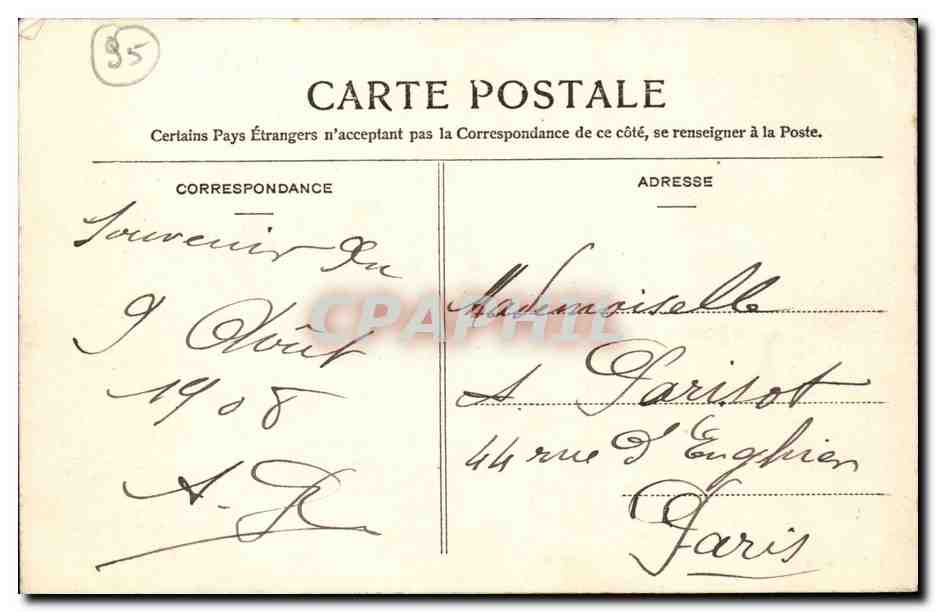 95
CARTE POSTALE
Certains Pays Étrangers n'acceptant pas la Correspondance de ce côté, se renseigner à la Poste.
CORRESPONDANCE
Souvenir du
9 Août
1908
A. R
ADRESSE
Mademoiselle
A. Parisot
44 rue d'Enghien
Paris
CPAPHIL